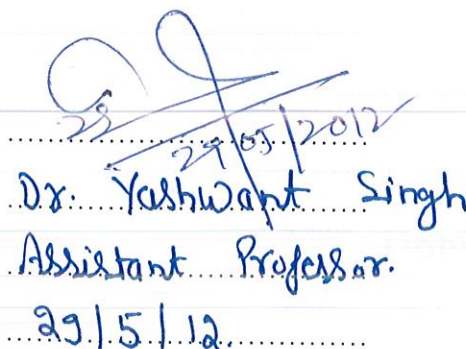 29/05/2012
Dr. Yashwant Singh
Assistant Professor.
29/5/12.